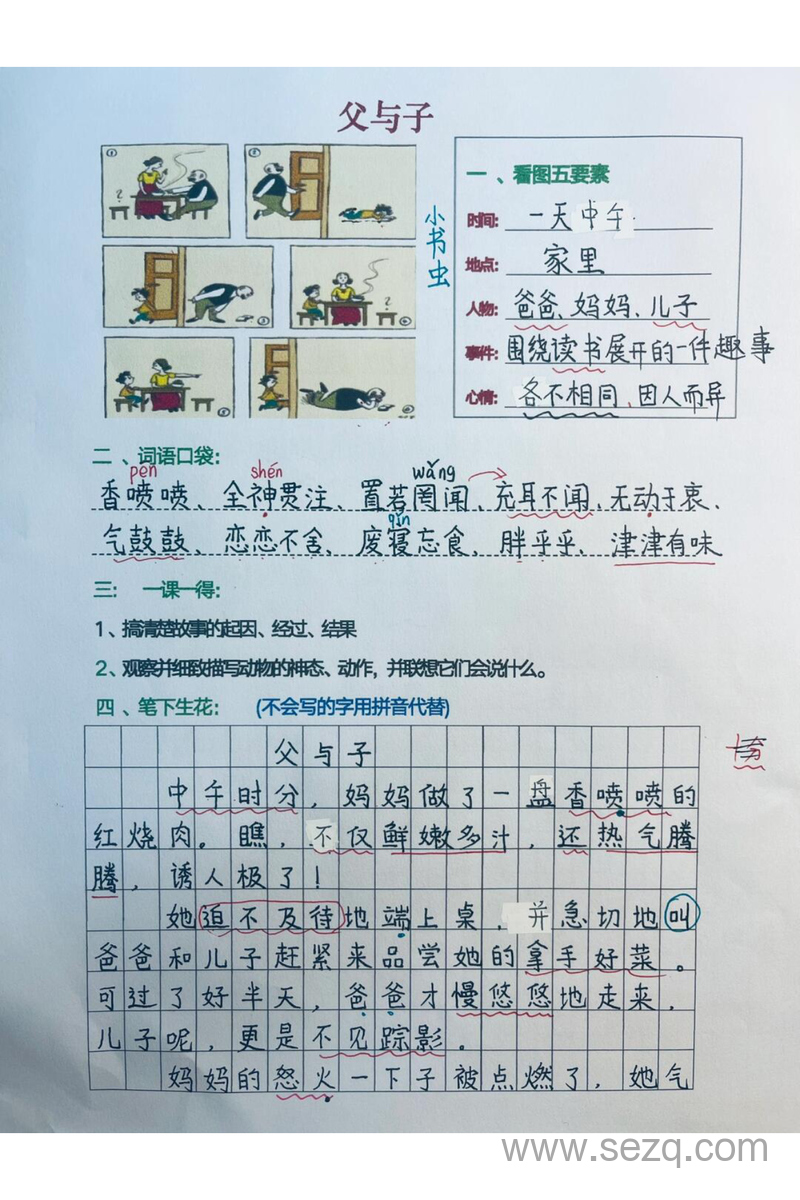 父与子
小书虫
一、看图五要素
时间: 一天中午
地点: 家里
人物: 爸爸、妈妈、儿子
事件: 围绕读书展开的一件趣事
心情: 各不相同、因人而异
二、词语口袋:
pēn shén wǎng
香喷喷、全神贯注、置若罔闻、充耳不闻、无动于衷、
qǐn
气鼓鼓、恋恋不舍、废寝忘食、胖乎乎、津津有味
三: 一课一得:
1、搞清楚故事的起因、经过、结果
2、观察并细致描写动物的神态、动作，并联想它们会说什么。
四、笔下生花: (不会写的字用拼音代替)
父与子
中午时分，妈妈做了一盘香喷喷的
红烧肉。瞧，不仅鲜嫩多汁，还热气腾
腾，诱人极了！
她迫不及待地端上桌，并急切地叫
爸爸和儿子赶紧来品尝她的拿手好菜。
可过了好半天，爸爸才慢悠悠地走来，
儿子呢，更是不见踪影。
妈妈的怒火一下子被点燃了，她气
www.sezq.com